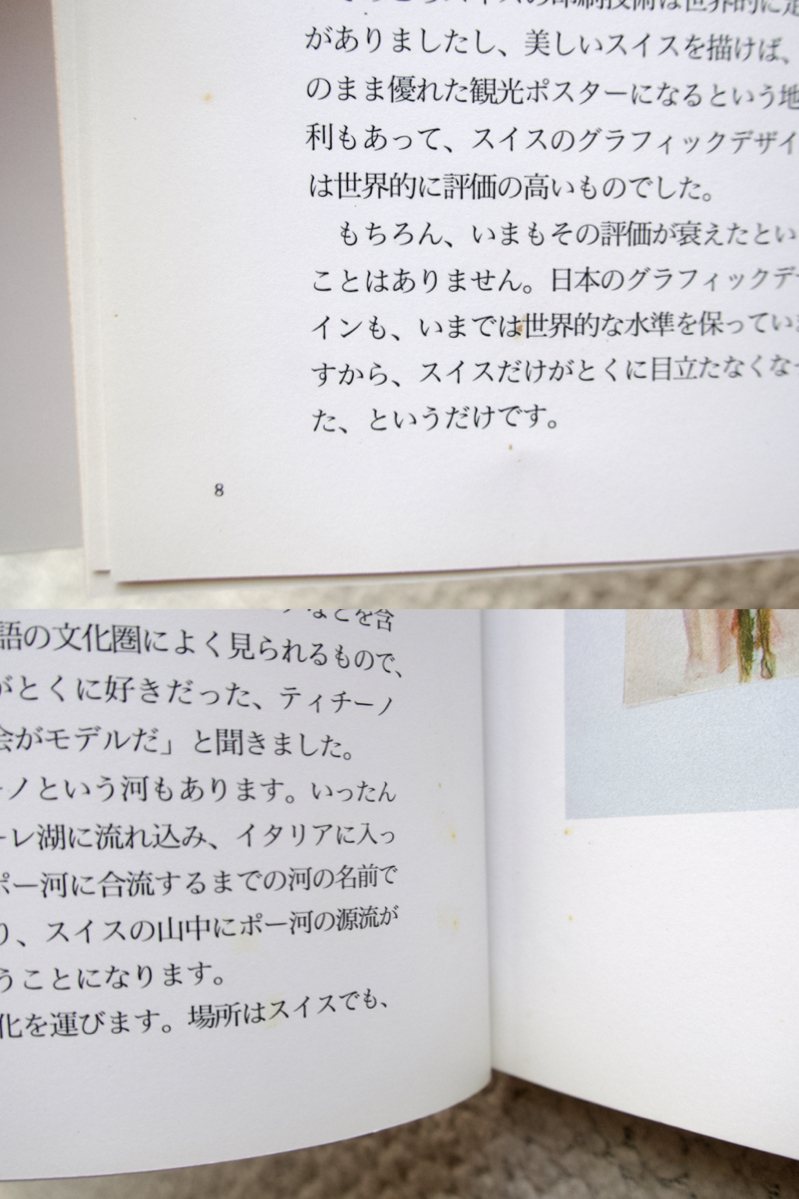 スイスの印刷技術は世界的に定
がありましたし、美しいスイスを描けば、
のまま優れた観光ポスターになるという地
利もあって、スイスのグラフィックデザイ
は世界的に評価の高いものでした。
もちろん、いまもその評価が衰えたとい
ことはありません。日本のグラフィックデザ
インも、いまでは世界的な水準を保っていま
すから、スイスだけがとくに目立たなくなっ
た、というだけです。
8
などを含
語の文化圏によく見られるもので、
がとくに好きだった、ティチーノ
会がモデルだ」と聞きました。
ーノという河もあります。いったん
ーレ湖に流れ込み、イタリアに入っ
ポー河に合流するまでの河の名前で
り、スイスの山中にポー河の源流が
うことになります。
化を運びます。場所はスイスでも、